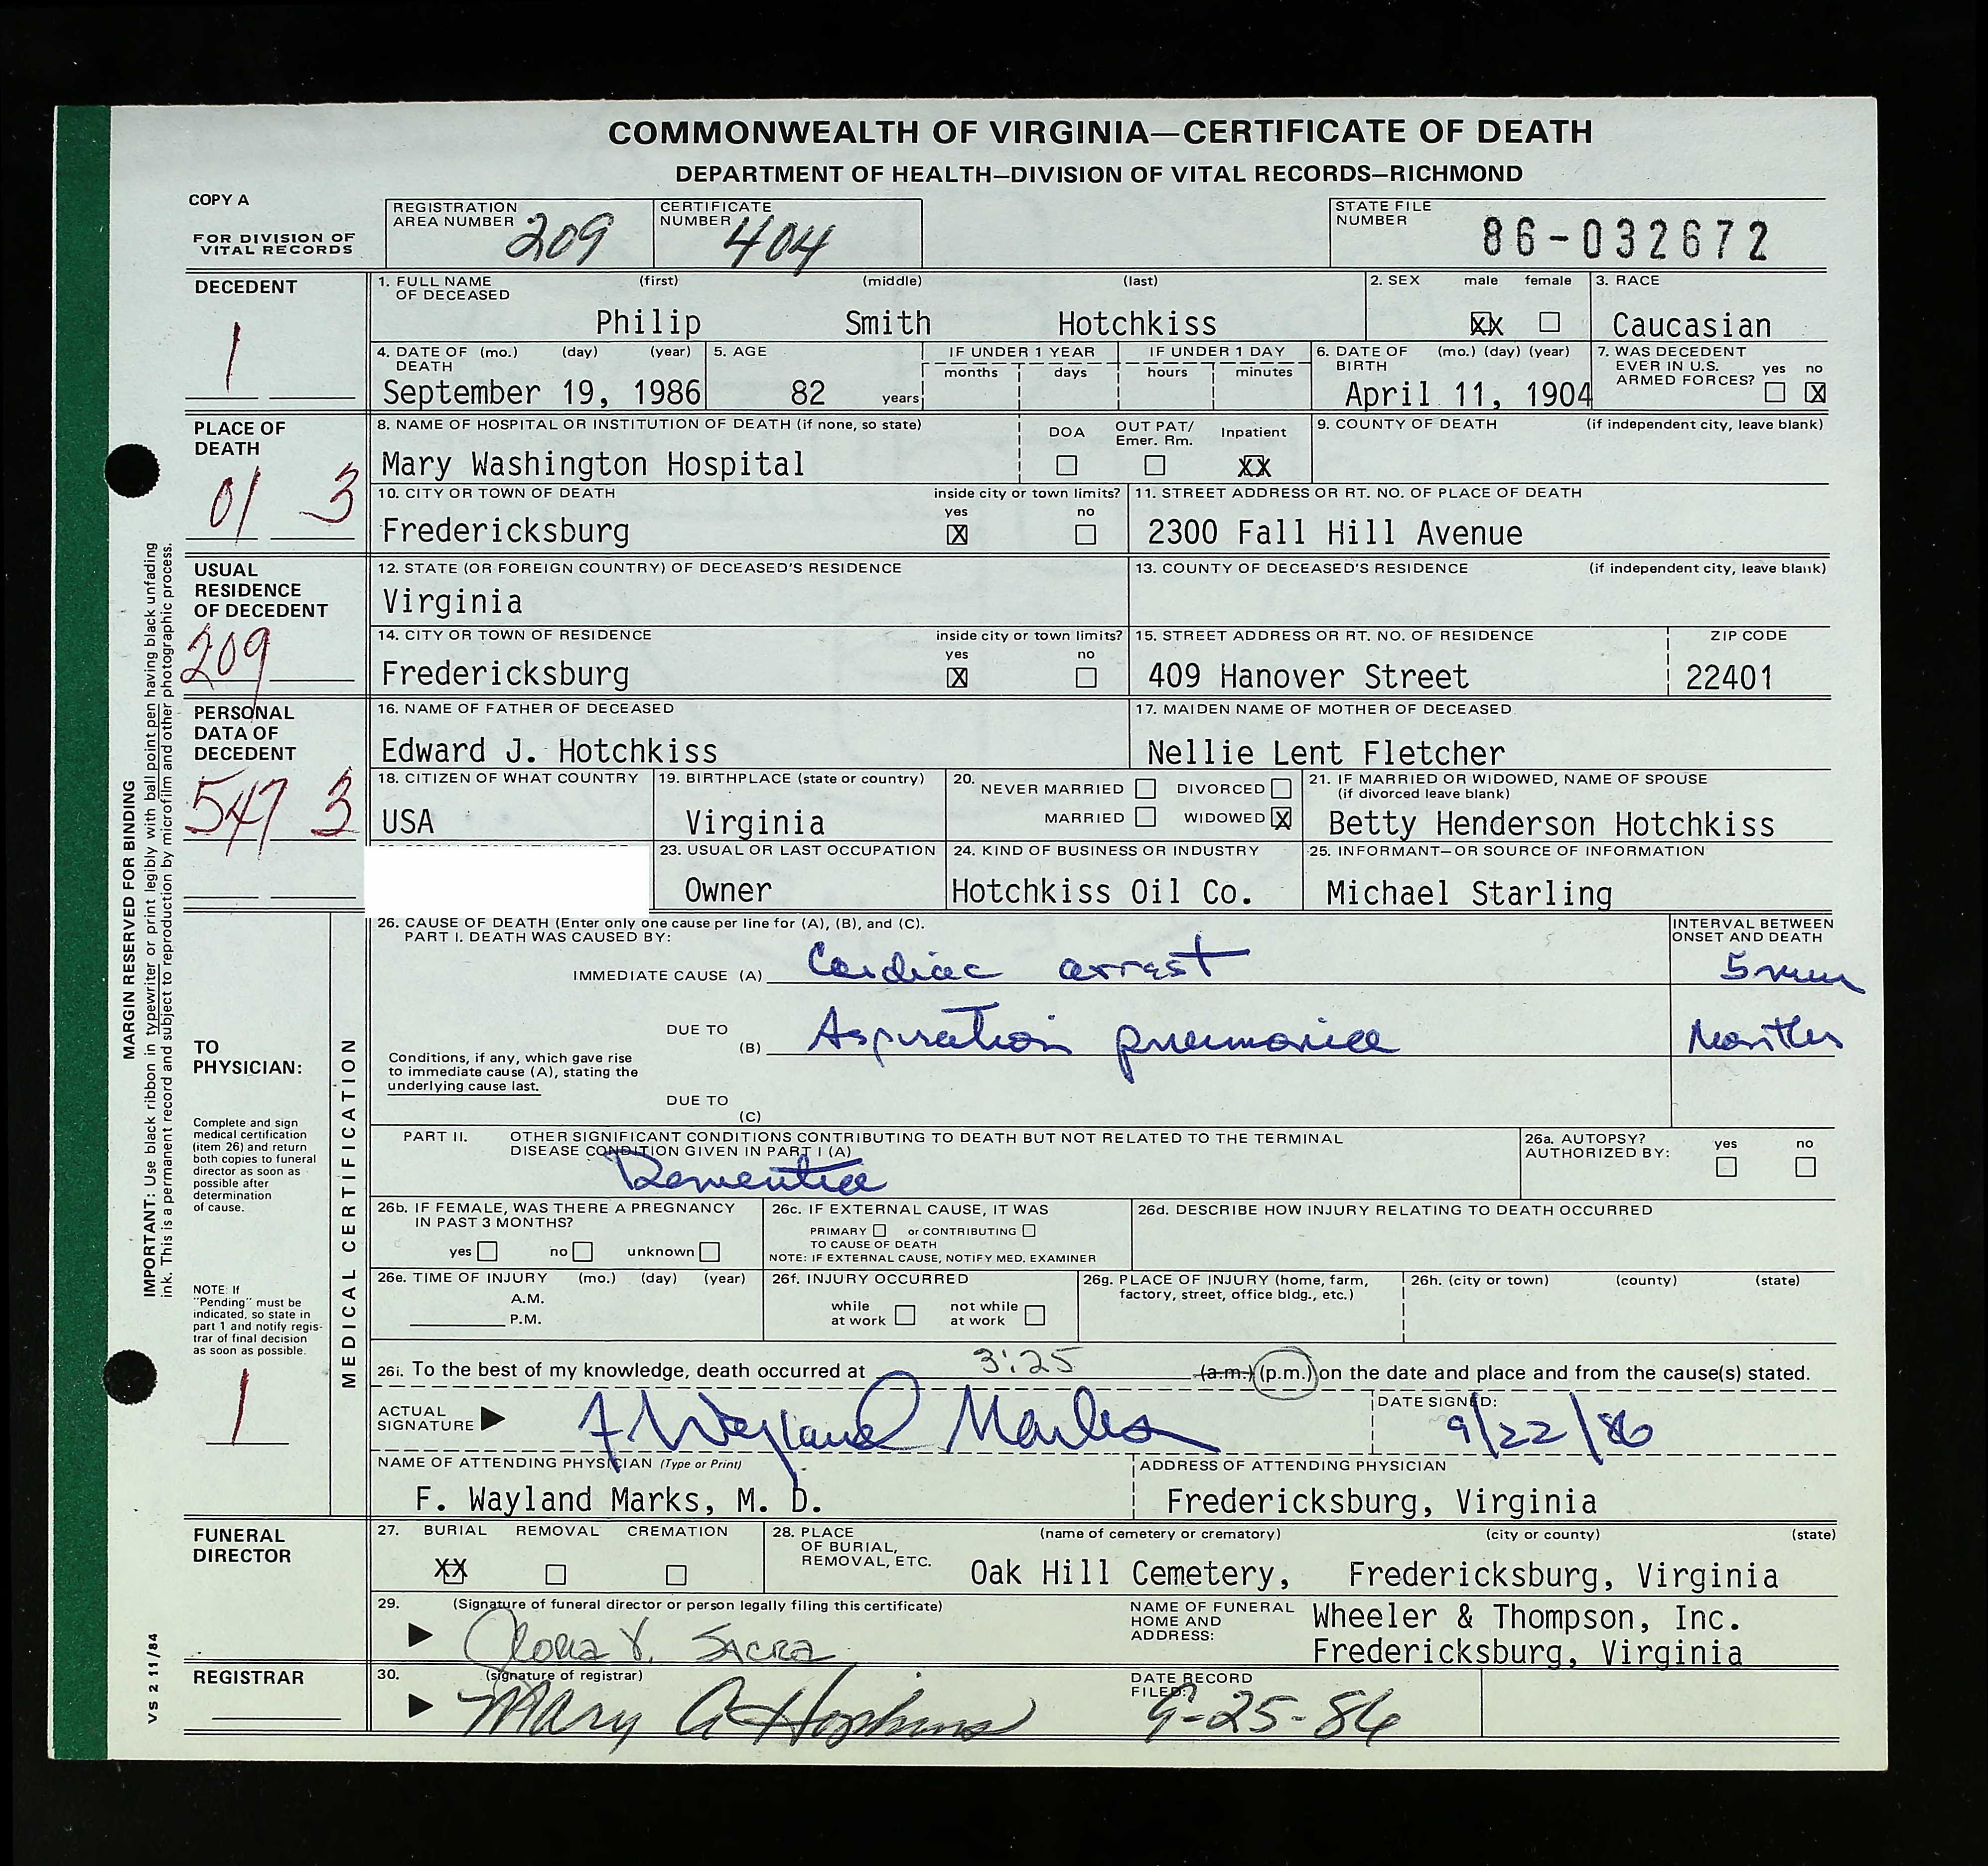 COMMONWEALTH OF VIRGINIA—CERTIFICATE OF DEATH
DEPARTMENT OF HEALTH—DIVISION OF VITAL RECORDS—RICHMOND
COPY A
FOR DIVISION OF
VITAL RECORDS
REGISTRATION
AREA NUMBER 209
CERTIFICATE
NUMBER 404
STATE FILE
NUMBER 86-032672
DECEDENT
1
1. FULL NAME (first) (middle) (last)
OF DECEASED
Philip Smith Hotchkiss
2. SEX male female
XX
3. RACE
Caucasian
4. DATE OF (mo.) (day) (year)
DEATH
September 19, 1986
5. AGE
82 years
IF UNDER 1 YEAR
months days
IF UNDER 1 DAY
hours minutes
6. DATE OF (mo.) (day) (year)
BIRTH
April 11, 1904
7. WAS DECEDENT
EVER IN U.S. yes no
ARMED FORCES? X
PLACE OF
DEATH
01 3
8. NAME OF HOSPITAL OR INSTITUTION OF DEATH (if none, so state)
Mary Washington Hospital
DOA OUT PAT/ Inpatient
Emer. Rm.
XX
9. COUNTY OF DEATH (if independent city, leave blank)
10. CITY OR TOWN OF DEATH inside city or town limits?
yes no
Fredericksburg X
11. STREET ADDRESS OR RT. NO. OF PLACE OF DEATH
2300 Fall Hill Avenue
USUAL
RESIDENCE
OF DECEDENT
209
12. STATE (OR FOREIGN COUNTRY) OF DECEASED'S RESIDENCE
Virginia
13. COUNTY OF DECEASED'S RESIDENCE (if independent city, leave blank)
14. CITY OR TOWN OF RESIDENCE inside city or town limits?
yes no
Fredericksburg X
15. STREET ADDRESS OR RT. NO. OF RESIDENCE ZIP CODE
409 Hanover Street 22401
PERSONAL
DATA OF
DECEDENT
547 3
16. NAME OF FATHER OF DECEASED
Edward J. Hotchkiss
17. MAIDEN NAME OF MOTHER OF DECEASED
Nellie Lent Fletcher
18. CITIZEN OF WHAT COUNTRY
USA
19. BIRTHPLACE (state or country)
Virginia
20. NEVER MARRIED DIVORCED
MARRIED WIDOWED X
21. IF MARRIED OR WIDOWED, NAME OF SPOUSE
(if divorced leave blank)
Betty Henderson Hotchkiss
23. USUAL OR LAST OCCUPATION
Owner
24. KIND OF BUSINESS OR INDUSTRY
Hotchkiss Oil Co.
25. INFORMANT—OR SOURCE OF INFORMATION
Michael Starling
MARGIN RESERVED FOR BINDING
IMPORTANT: Use black ribbon in typewriter or print legibly with ball point pen having black unfading
ink. This is a permanent record and subject to reproduction by microfilm and other photographic process.
TO
PHYSICIAN:
Complete and sign
medical certification
(item 26) and return
both copies to funeral
director as soon as
possible after
determination
of cause.
NOTE: If
"Pending" must be
indicated, so state in
part 1 and notify regis-
trar of final decision
as soon as possible.
1
MEDICAL CERTIFICATION
26. CAUSE OF DEATH (Enter only one cause per line for (A), (B), and (C).
PART I. DEATH WAS CAUSED BY:
INTERVAL BETWEEN
ONSET AND DEATH
IMMEDIATE CAUSE (A) Cardiac arrest 5 min
DUE TO
(B) Aspiration pneumonia Months
Conditions, if any, which gave rise
to immediate cause (A), stating the
underlying cause last.
DUE TO
(C)
PART II. OTHER SIGNIFICANT CONDITIONS CONTRIBUTING TO DEATH BUT NOT RELATED TO THE TERMINAL
DISEASE CONDITION GIVEN IN PART I (A)
Dementia
26a. AUTOPSY? yes no
AUTHORIZED BY:
26b. IF FEMALE, WAS THERE A PREGNANCY
IN PAST 3 MONTHS?
yes no unknown
26c. IF EXTERNAL CAUSE, IT WAS
PRIMARY or CONTRIBUTING
TO CAUSE OF DEATH
NOTE: IF EXTERNAL CAUSE, NOTIFY MED. EXAMINER
26d. DESCRIBE HOW INJURY RELATING TO DEATH OCCURRED
26e. TIME OF INJURY (mo.) (day) (year)
A.M.
P.M.
26f. INJURY OCCURRED
while not while
at work at work
26g. PLACE OF INJURY (home, farm,
factory, street, office bldg., etc.)
26h. (city or town) (county) (state)
26i. To the best of my knowledge, death occurred at 3:25 (a.m.) (p.m.) on the date and place and from the cause(s) stated.
ACTUAL
SIGNATURE F Wayland Marks
DATE SIGNED:
9/22/86
NAME OF ATTENDING PHYSICIAN (Type or Print)
F. Wayland Marks, M. D.
ADDRESS OF ATTENDING PHYSICIAN
Fredericksburg, Virginia
FUNERAL
DIRECTOR
27. BURIAL REMOVAL CREMATION
XX
28. PLACE (name of cemetery or crematory) (city or county) (state)
OF BURIAL,
REMOVAL, ETC.
Oak Hill Cemetery, Fredericksburg, Virginia
29. (Signature of funeral director or person legally filing this certificate)
Sacra
NAME OF FUNERAL
HOME AND
ADDRESS:
Wheeler & Thompson, Inc.
Fredericksburg, Virginia
REGISTRAR
30. (signature of registrar)
Mary A Hopkins
DATE RECORD
FILED:
9-25-86
VS 2 11/84